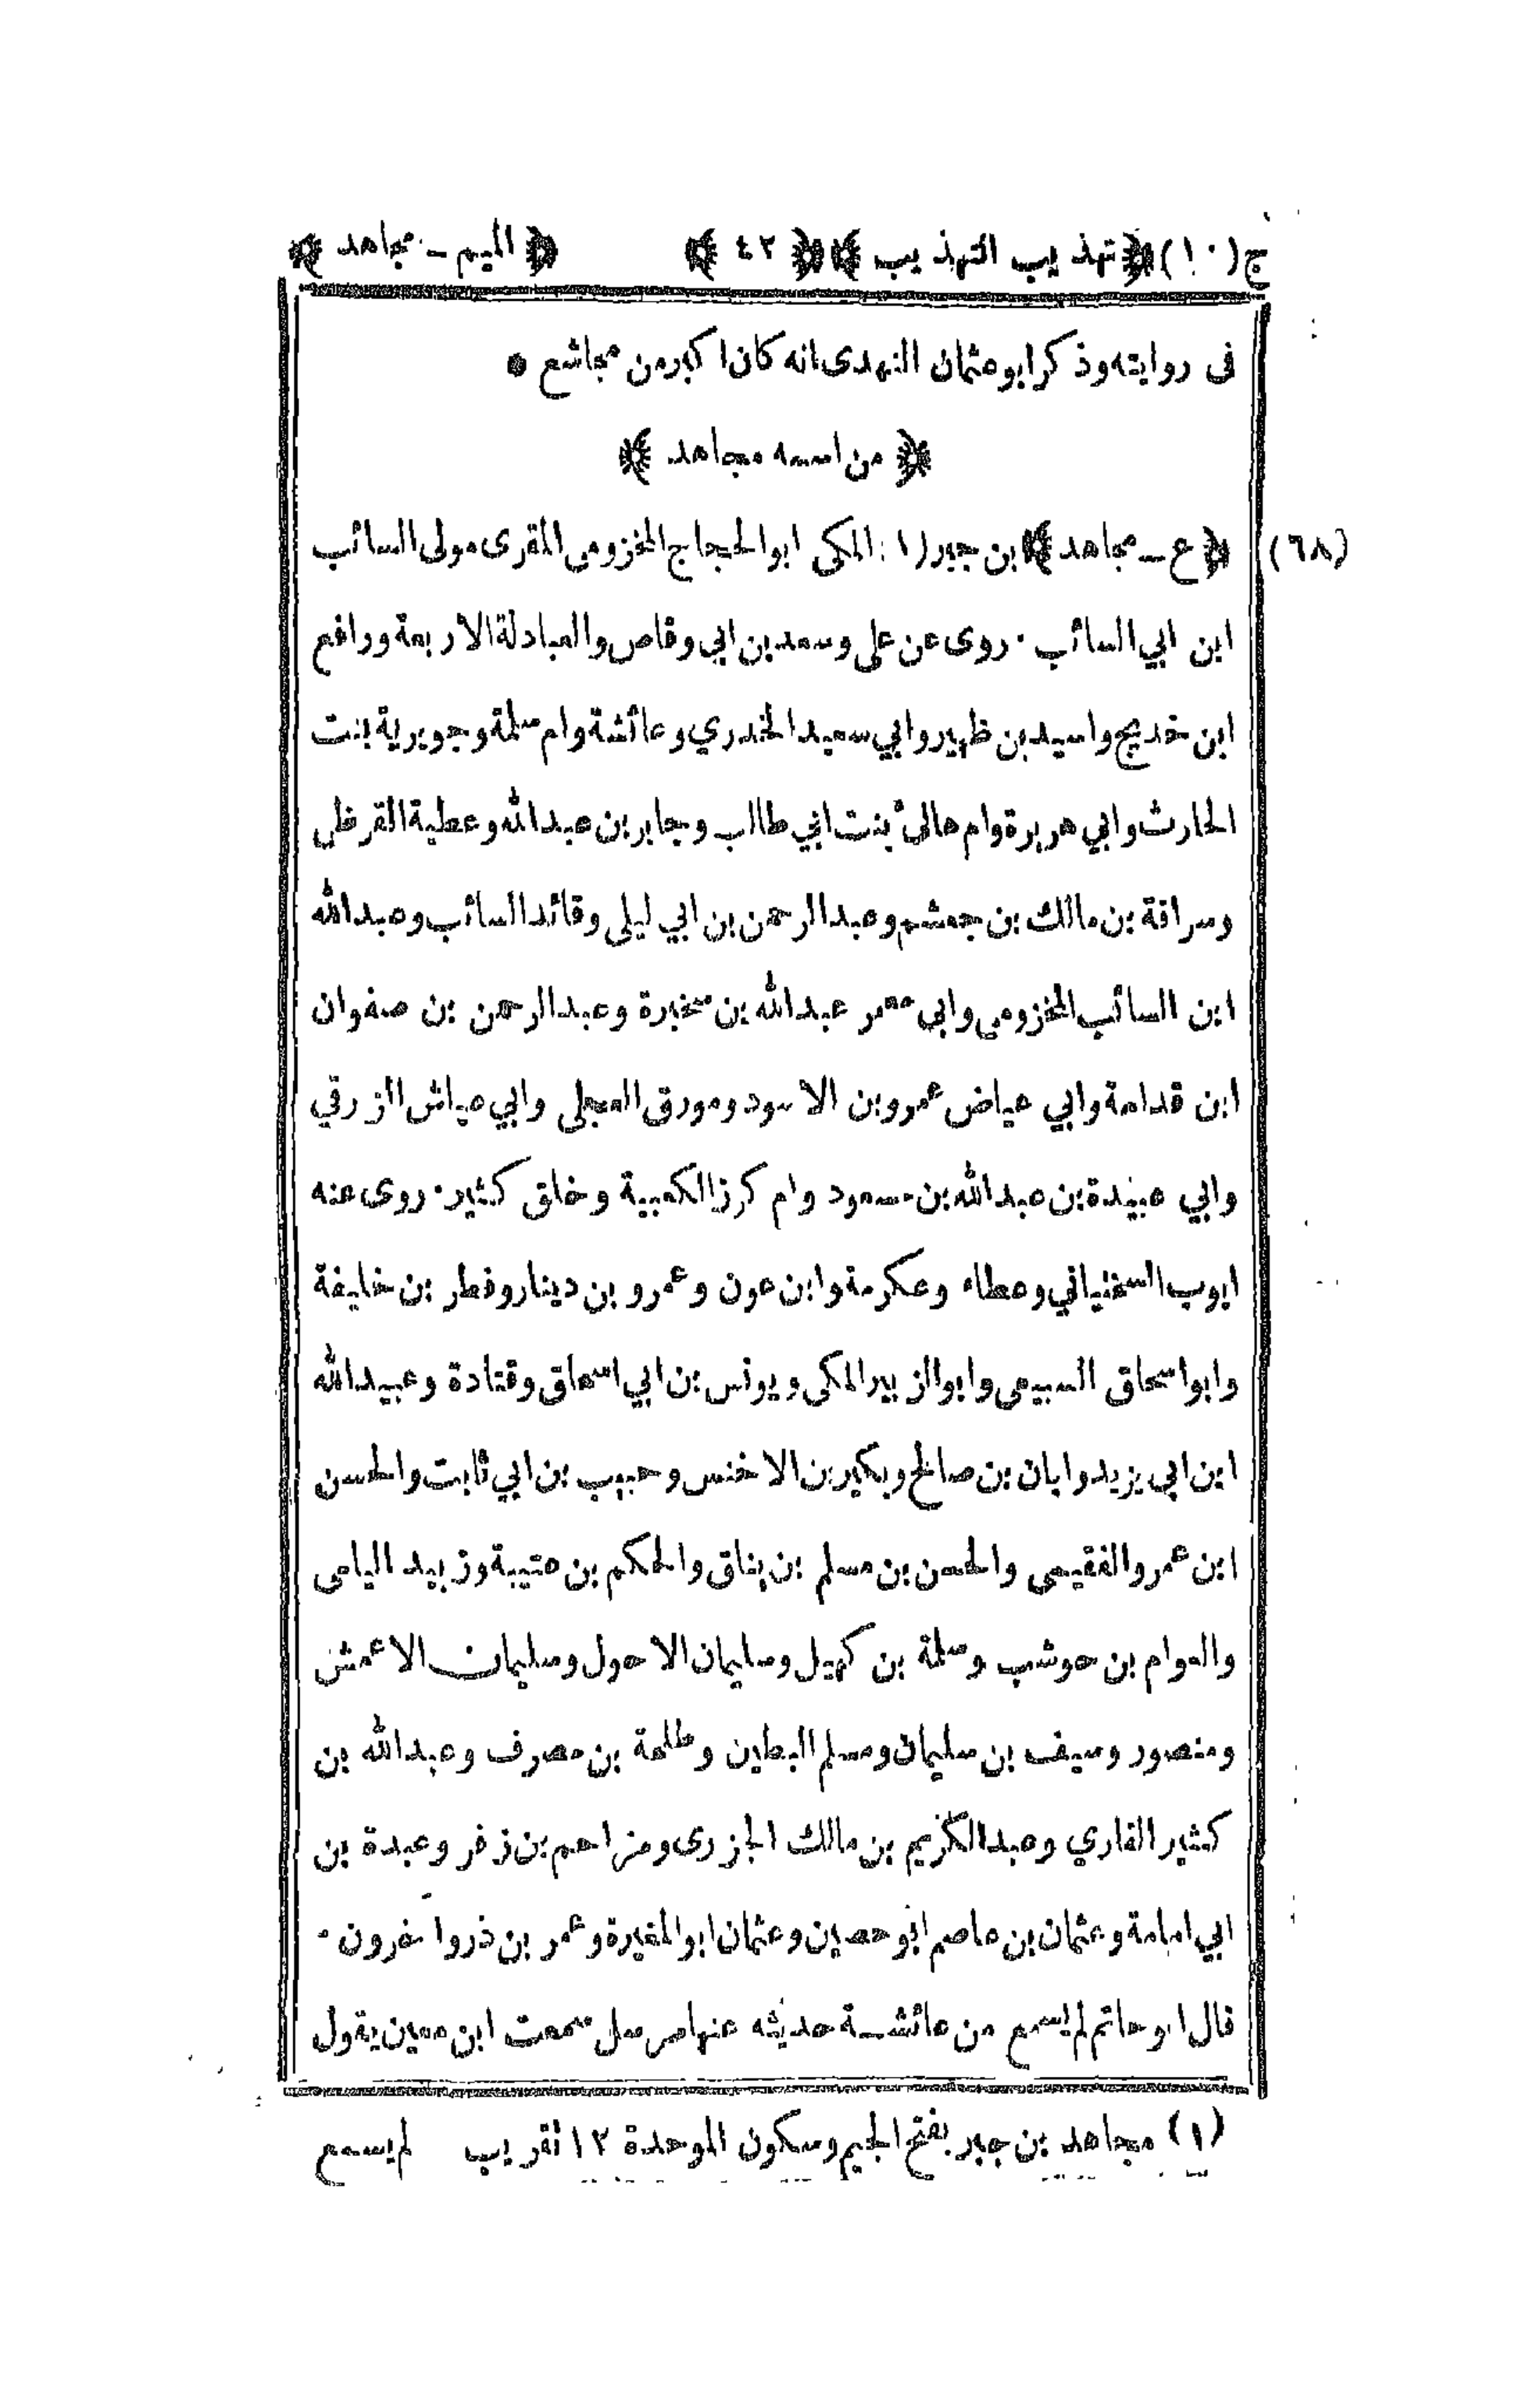 ج (١٠) ﴿تهذيب التهذيب﴾ ﴿٤٢﴾ ﴿الميم - مجاهد﴾
فى روايته وذكر ابو عثمان النهدى انه كان اكبر من مجاشع ●
﴿من اسمه مجاهد﴾
(٦٨) ﴿ع - مجاهد﴾ بن جبر (١) المكى ابو الحجاج المخزومى المقرى مولى السائب
ابن ابي السائب · روى عن على وسعد بن ابي وقاص والعبادلة الاربعة ورافع
ابن خديج واسيد بن ظهير وابي سعيد الخدري وعائشة وام سلمة وجويرية بنت
الحارث وابي هريرة وام هانئ بنت ابي طالب وجابر بن عبدالله وعطية القرظى
وسراقة بن مالك بن جعشم وعبدالرحمن بن ابي ليلى وقائد السائب وعبدالله
ابن السائب المخزومى وابى معمر عبدالله بن سخبرة وعبدالرحمن بن صفوان
ابن قدامة وابي عياض عمرو بن الاسود ومورق العجلى وابي عياش الزرقي
وابي عبيدة بن عبدالله بن مسعود وام كرز الكعبية وخلق كثير · روى عنه
ايوب السختياني وعطاء وعكرمة وابن عون وعمرو بن دينار وفطر بن خليفة
وابو اسحاق السبيعى وابو الزبير المكى ويونس بن ابي اسحاق وقتادة وعبيدالله
ابن ابى يزيد وابان بن صالح وبكير بن الاخنس وحبيب بن ابي ثابت والحسن
ابن عمرو الفقيمى والحسن بن مسلم بن يناق والحكم بن عتيبة وزبيد اليامى
والعوام بن حوشب وسلمة بن كهيل وسليمان الاحول وسليمان الاعمش
ومنصور وسيف بن سليمان ومسلم البطين وطلحة بن مصرف وعبدالله بن
كثير القاري وعبدالكريم بن مالك الجزرى ومزاحم بن زفر وعبدة بن
ابي امامة وعثمان بن عاصم ابو حصين وعثمان ابو المغيرة وعمر بن ذر وآخرون ·
قال ابو حاتم لم يسمع من عائشة حديثه عنها مرسل سمعت ابن معين يقول
(١) مجاهد بن جبر بفتح الجيم وسكون الموحدة ١٢ تقريب لم يسمع